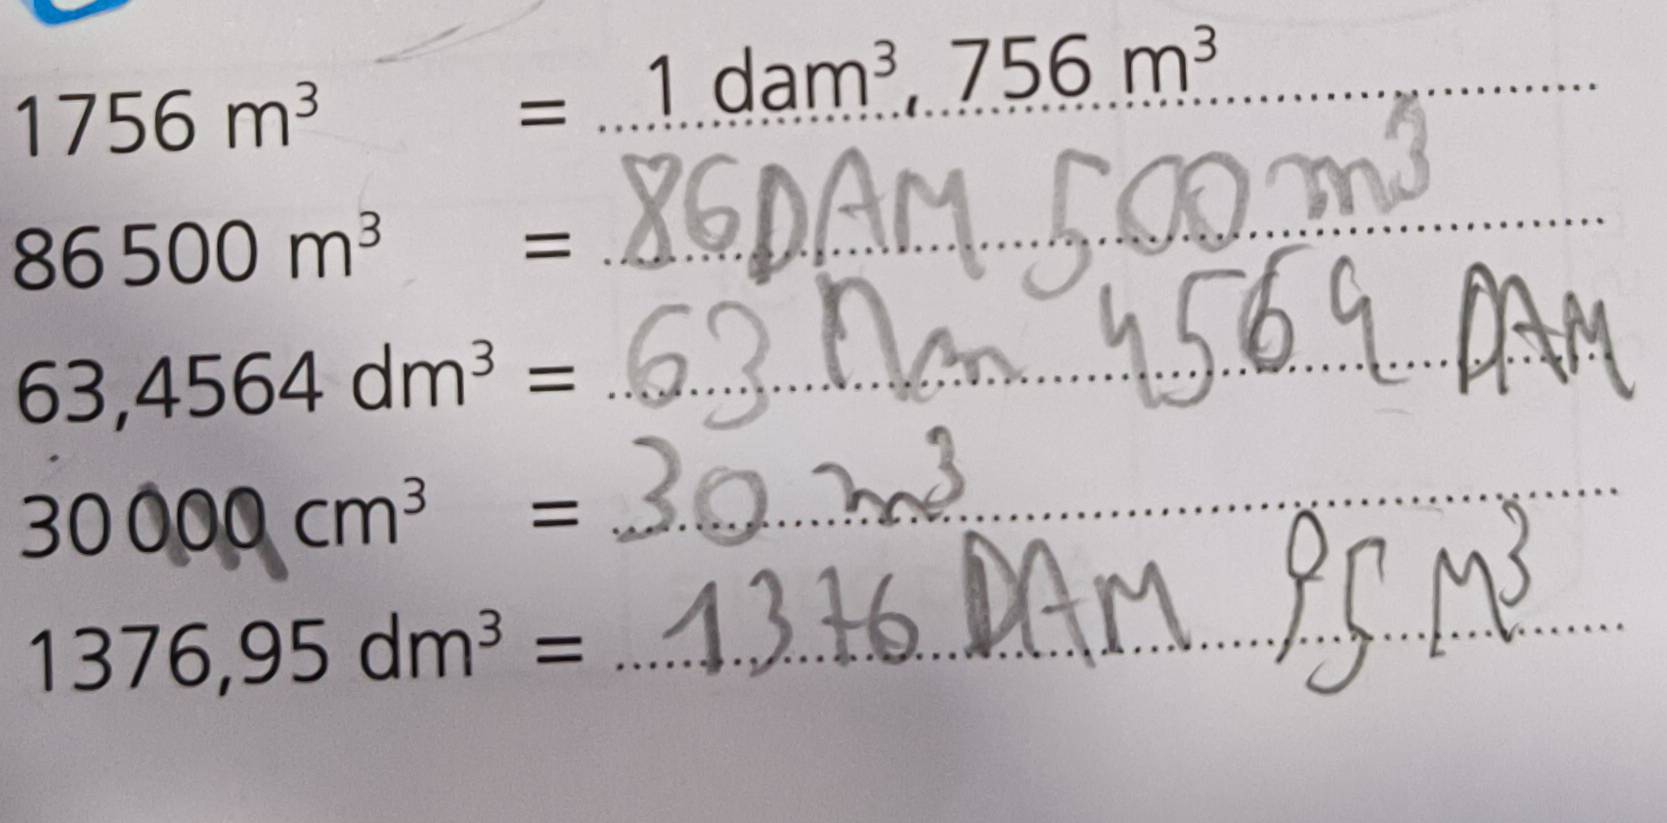 1756 m³ = 1 dam³, 756 m³
86 500 m³ = 86 DAM 500 m³
63,4564 dm³ = 63 4564 DAM
30 000 cm³ = 30 m³
1376,95 dm³ = 1376 DAM 95 M³